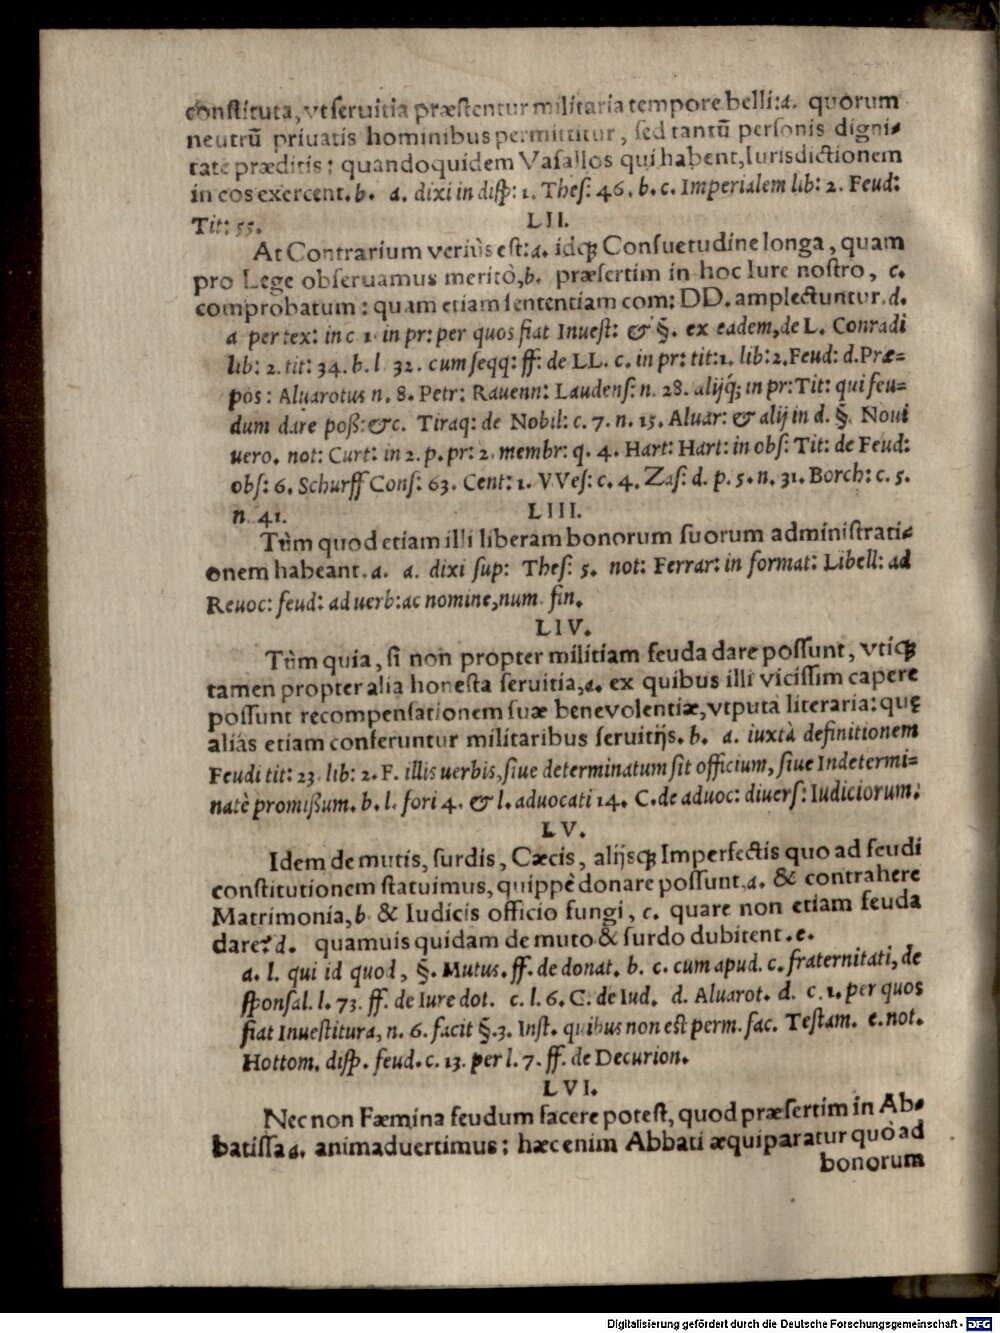 constituta, vt seruitia præstentur militaria tempore belli: a. quorum
neutrũ priuatis hominibus permittitur, sed tantũ personis digni-
tate præditis: quandoquidem Vasallos qui habent, Iurisdictionem
in eos exercent. b. a. dixi in disp: 1. Thes: 46. b. c. Imperialem lib: 2. Feud:
Tit: 55.
LII.
At Contrarium veriùs est: a. idq́; Consuetudine longa, quam
pro Lege obseruamus meritò, b. præsertim in hoc Iure nostro, c.
comprobatum: quam etiam sententiam com: DD. amplectuntur. d.
a per tex: in c 1. in pr: per quos fiat Inuest: & §. ex eadem, de L. Conradi
lib: 2. tit: 34. b. l 32. cum seqq: ff: de LL. c. in pr: tit: 1. lib: 2. Feud: d. Præ-
pos: Aluarotus n. 8. Petr: Rauenn: Laudens: n. 28. alijq́; in pr: Tit: qui feu-
dum dare poß: &c. Tiraq: de Nobil: c. 7. n. 15. Aluar: & alij in d. §. Noui
uero. not: Curt: in 2. p. pr: 2. membr: q. 4. Hart: Hart: in obs: Tit: de Feud:
obs: 6. Schurff Cons: 63. Cent: 1. VVes: c. 4. Zas: d. p. 5. n. 31. Borch: c. 5.
n 41.
LIII.
Tùm quod etiam illi liberam bonorum suorum administrati-
onem habeant. a. a. dixi sup: Thes: 5. not: Ferrar: in format: Libell: ad
Reuoc: feud: ad uerb: ac nomine, num. fin.
LIV.
Tùm quia, si non propter militiam feuda dare possunt, vtiq́;
tamen propter alia honesta seruitia, a. ex quibus illi vicissim capere
possunt recompensationem suæ benevolentiæ, vtputà literaria: quę
aliàs etiam conferuntur militaribus seruitijs. b. a. iuxtà definitionem
Feudi tit: 23. lib: 2. F. illis uerbis, siue determinatum sit officium, siue Indetermi-
natè promißum. b. l. fori 4. & l. aduocati 14. C. de aduoc: diuers: Iudiciorum.
LV.
Idem de mutis, surdis, Cæcis, alijsq́; Imperfectis quo ad feudi
constitutionem statuimus, quippè donare possunt, a. & contrahere
Matrimonia, b & Iudicis officio fungi, c. quare non etiam feuda
dare? d. quamuis quidam de muto & surdo dubitent. e.
a. l. qui id quod, §. Mutus. ff. de donat. b. c. cum apud. c. fraternitati, de
sponsal. l. 73. ff. de Iure dot. c. l. 6. C. de Iud. d. Aluarot. d. c. 1. per quos
fiat Inuestitura, n. 6. facit §. 3. Inst. quibus non est perm. fac. Testam. e. not.
Hottom. disp. feud. c. 13. per l. 7. ff. de Decurion.
LVI.
Nec non Fæmina feudum facere potest, quod præsertim in Ab-
batissa a. animaduertimus; hæc enim Abbati æquiparatur quò ad
bonorum
Digitalisierung gefördert durch die Deutsche Forschungsgemeinschaft - DFG